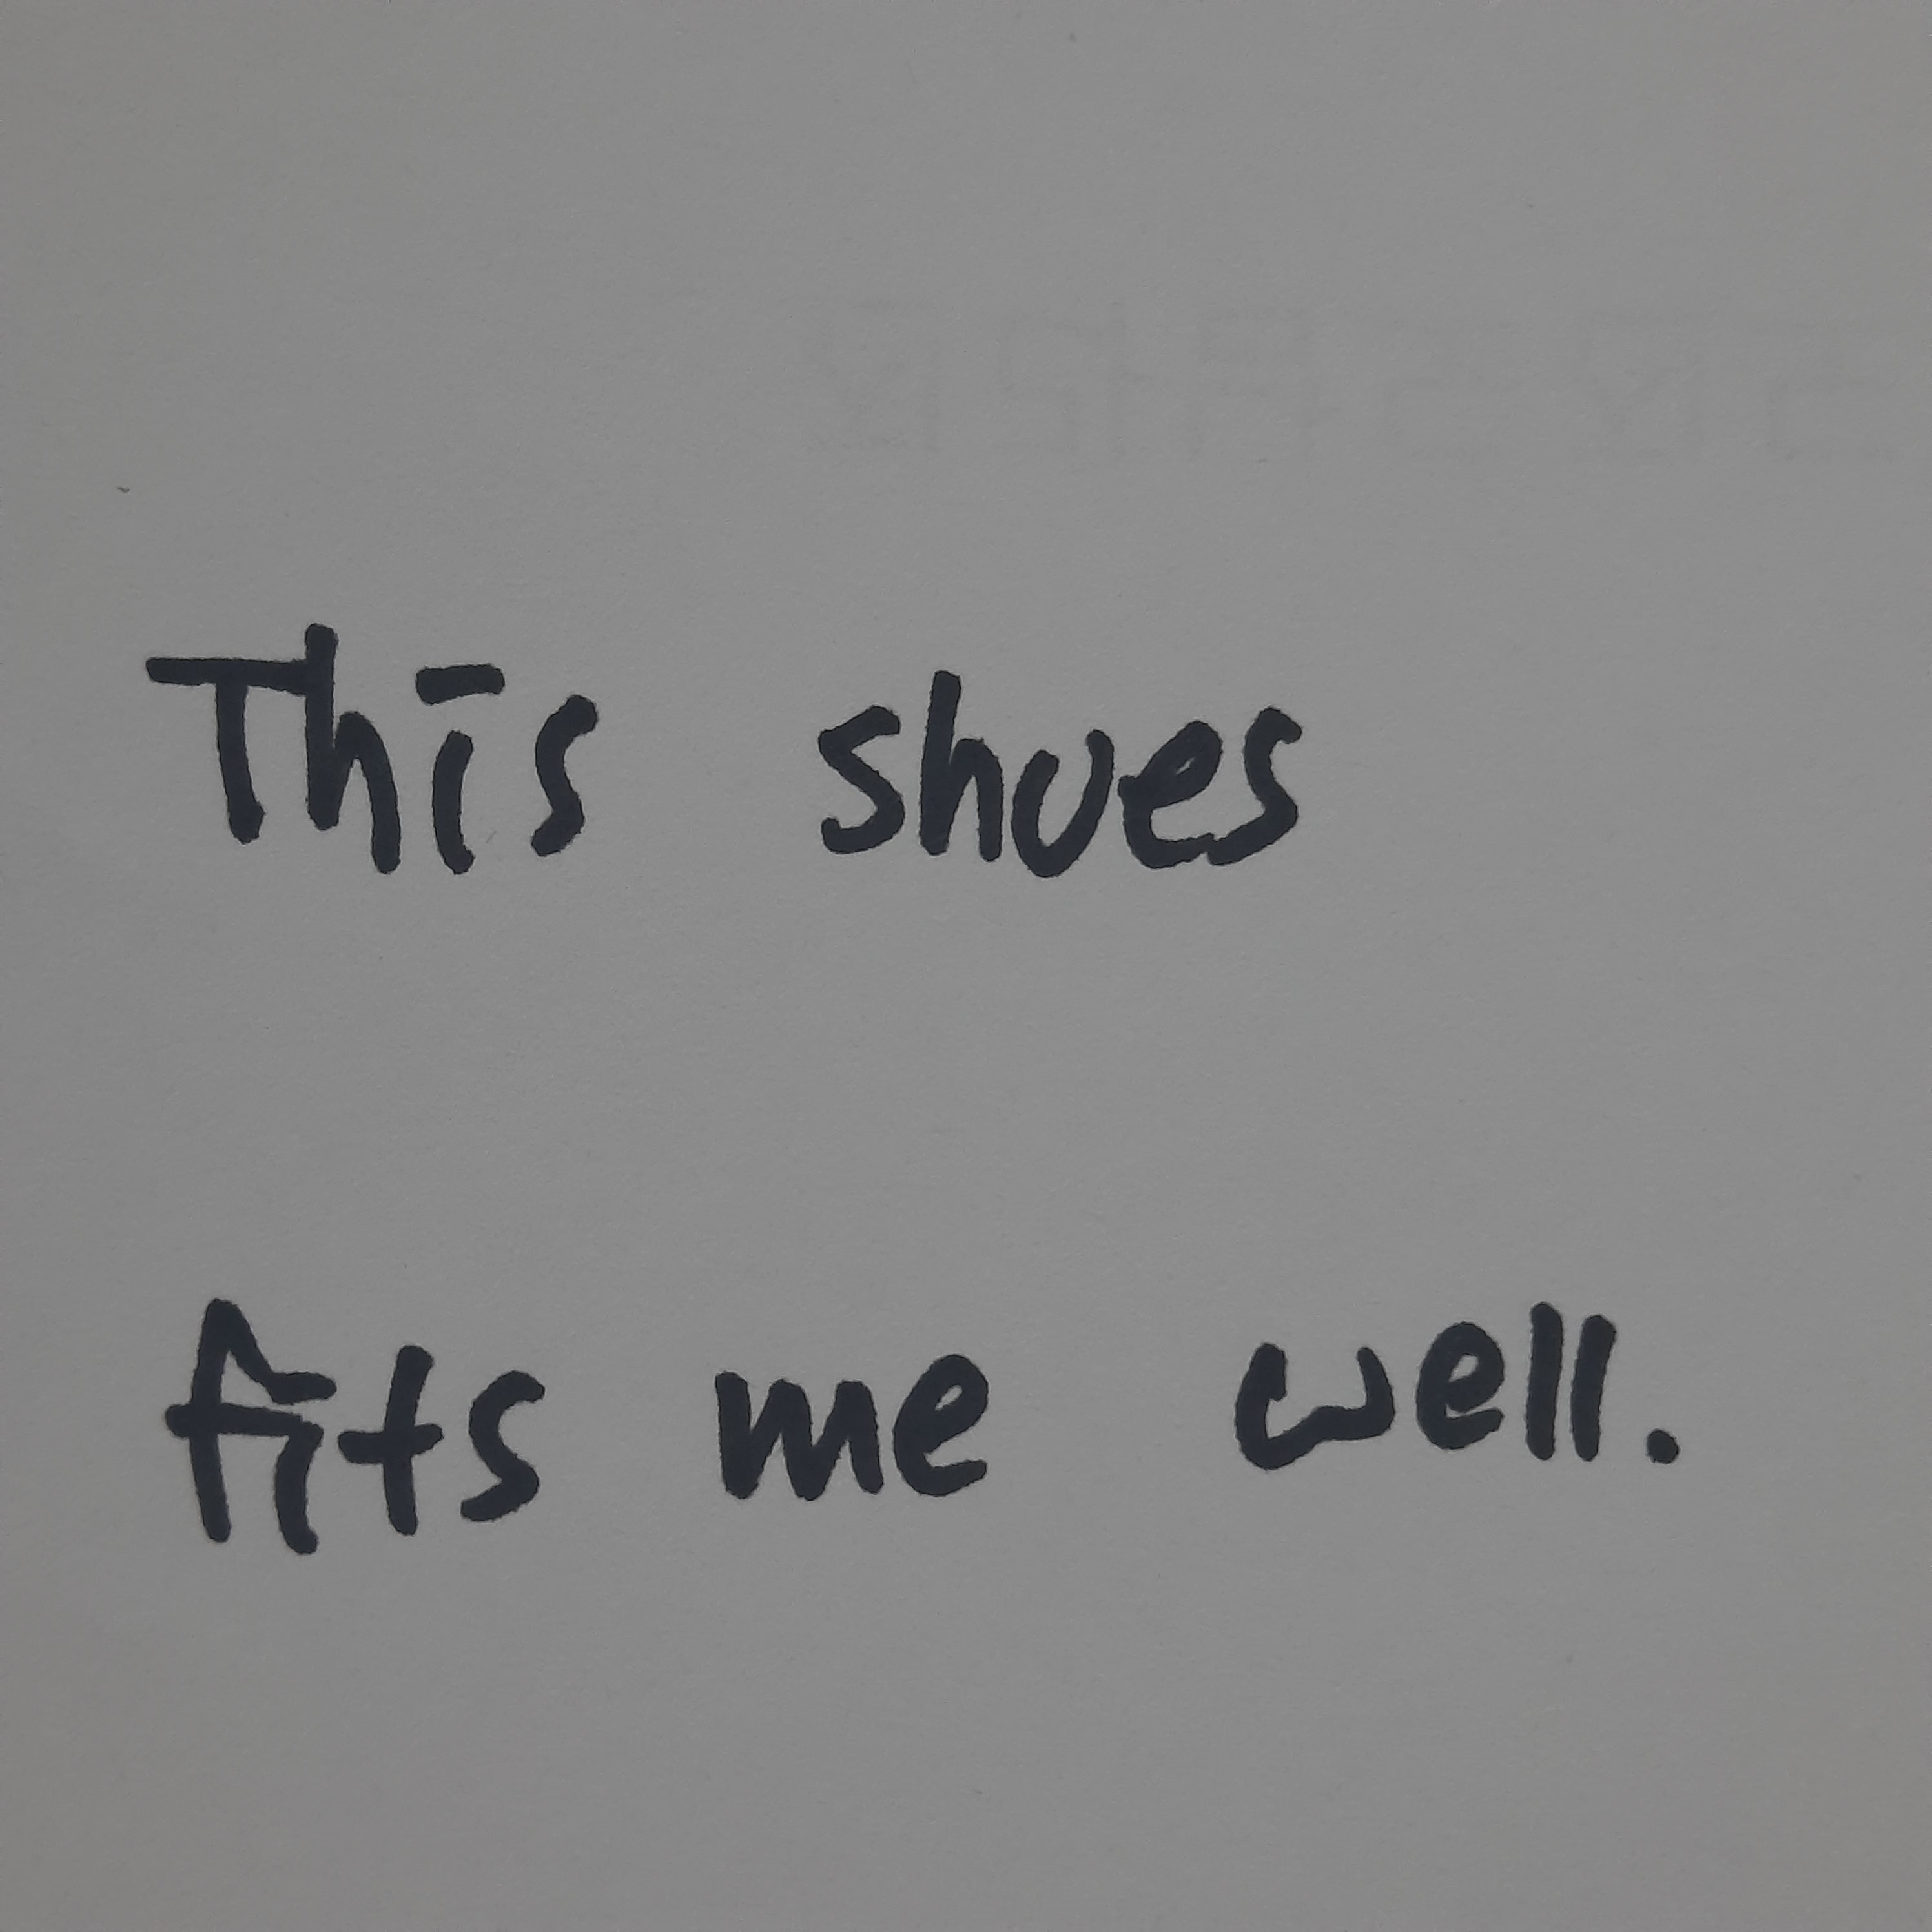 This shoes
fits me well.